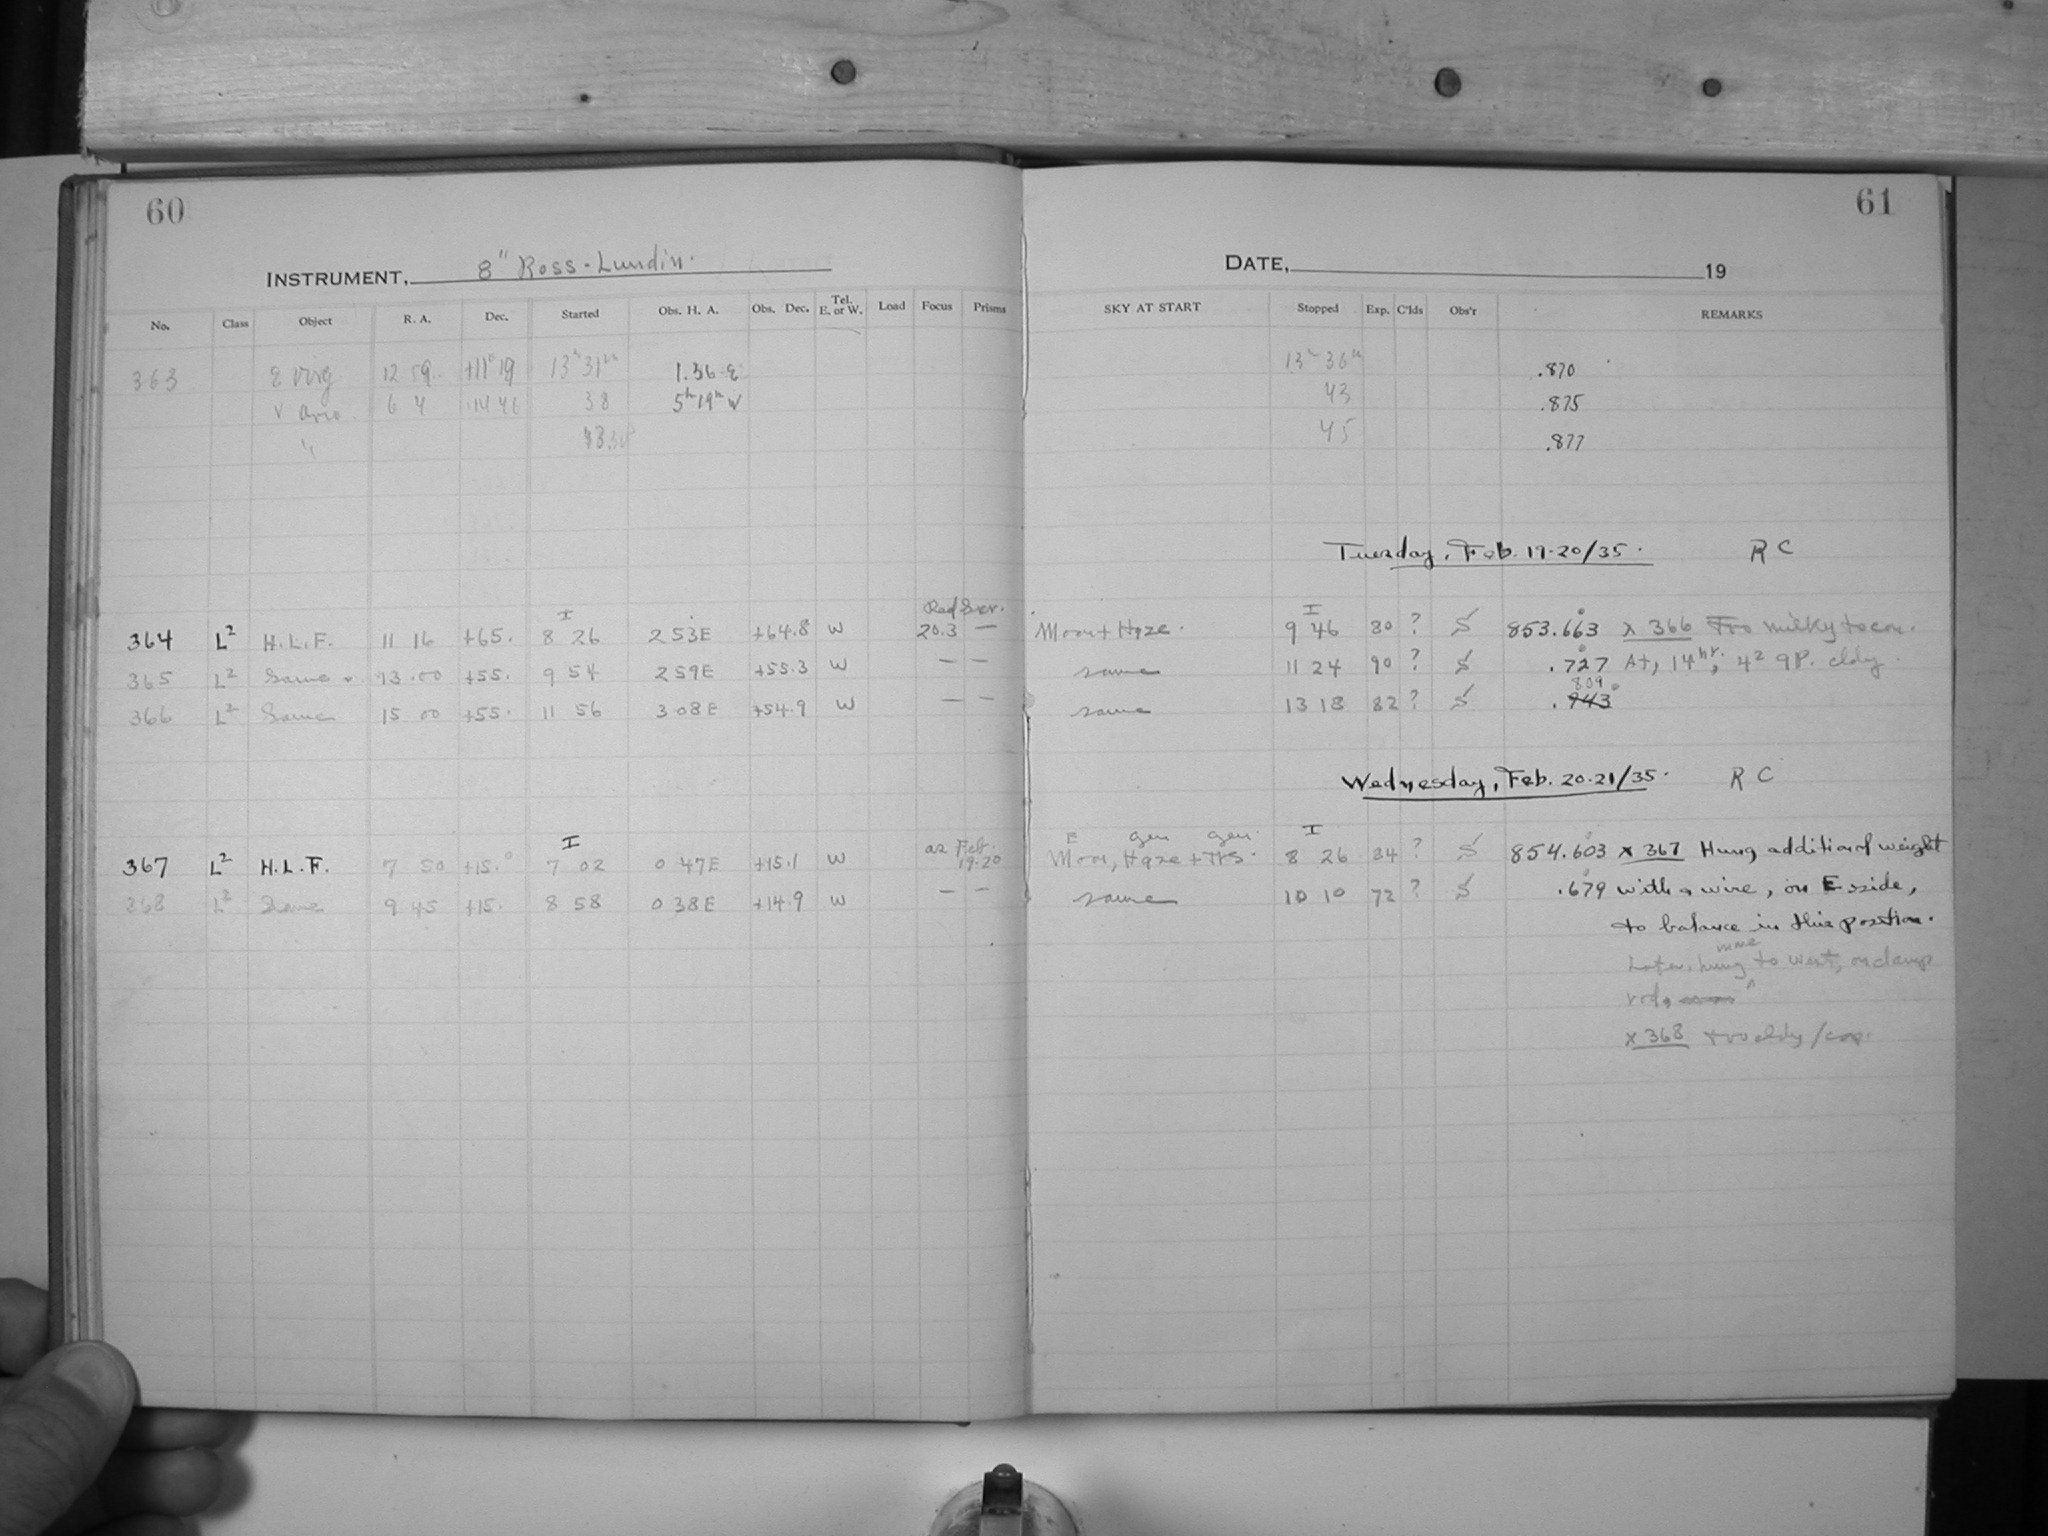 60
61
INSTRUMENT, 8" Ross-Lundin.
DATE, 19
No. Class Object R. A. Dec. Started Obs. H. A. Obs. Dec. Tel. E. or W. Load Focus Prisms SKY AT START Stopped Exp. C'lds Obs'r REMARKS
363 ε Virg 12 59 +11° 19 13h 31m 1.36 E 13h 36m .870
6 4 14 46 38 5h 19m W 43 .875
" 45 .877
Tuesday, Feb. 19-20/35. R C
I Red I
364 L² H.L.F. 11 16 +65. 8 26 2 53E +64.8 W 20.3 — Moon + Haze. 9 46 80 ? S 853.663 x 366 Too milky to con.
365 L² Same 13.00 +55. 9 54 2 59E +55.3 W — — same 11 24 90 ? S .727 At, 14hr, cldy.
366 L² Same 15 00 +55. 11 56 3 08E +54.9 W — — same 13 18 82 ? S .943 809
Wednesday, Feb. 20-21/35. R C
I as Feb. 19-20 E gen gen. I
367 L² H.L.F. 7 50 +15.° 7 02 0 47E +15.1 W Moon, Haze + 8 26 84 ? S 854.603 x 367 Hung additional weight
368 L² Same 9 45 +15. 8 58 0 38E +14.9 W — — same 10 10 72 ? S .679 with a wire, on E side,
to balance in this position.
Later, hung to west, on clamp
rod,
x 368 too cldy